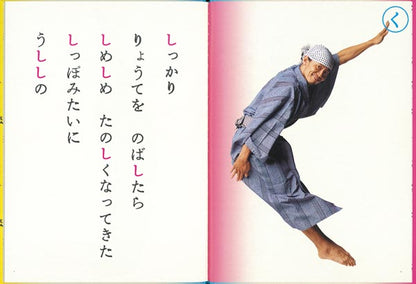 しっかり
りょうてを のばしたら
しめしめ たのしくなってきた
しっぽみたいに
うししの
く